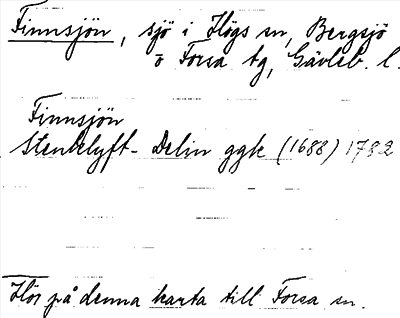 Finnsjön, sjö i Högs sn, Bergsjö
o Forsa tg, Gävleb. l.
Finnsjön
Stenbelyft- Delin ggk (1688) 1782
Hör på denna karta till Forsa sn.